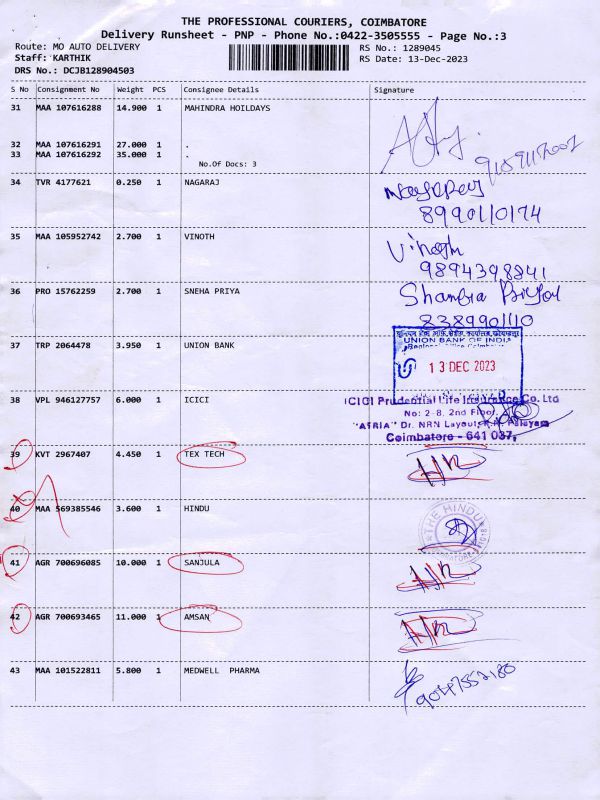 THE PROFESSIONAL COURIERS, COIMBATORE
Delivery Runsheet - PNP - Phone No.:0422-3505555 - Page No.:3
Route: MO AUTO DELIVERY RS No.: 1289045
Staff: KARTHIK RS Date: 13-Dec-2023
DRS No.: DCJB128904503
S No Consignment No Weight PCS Consignee Details Signature
31 MAA 107616288 14.900 1 MAHINDRA HOILDAYS
32 MAA 107616291 27.000 1 .
33 MAA 107616292 35.000 1 .
No.Of Docs: 3
34 TVR 4177621 0.250 1 NAGARAJ
8990110174
35 MAA 105952742 2.700 1 VINOTH Vinoth
9894398841
36 PRO 15762259 2.700 1 SNEHA PRIYA
8389901110
37 TRP 2064478 3.950 1 UNION BANK
UNION BANK OF INDIA
13 DEC 2023
38 VPL 946127757 6.000 1 ICICI
ICICI Prudential Life Insurance Co. Ltd
No: 2-8, 2nd Floor,
"AFRIA" Dr. NRN Layout,
Coimbatore - 641 037.
39 KVT 2967407 4.450 1 TEX TECH
40 MAA 569385546 3.600 1 HINDU
THE HINDU
41 AGR 700696085 10.000 1 SANJULA
42 AGR 700693465 11.000 1 AMSAN
43 MAA 101522811 5.800 1 MEDWELL PHARMA
9047552180